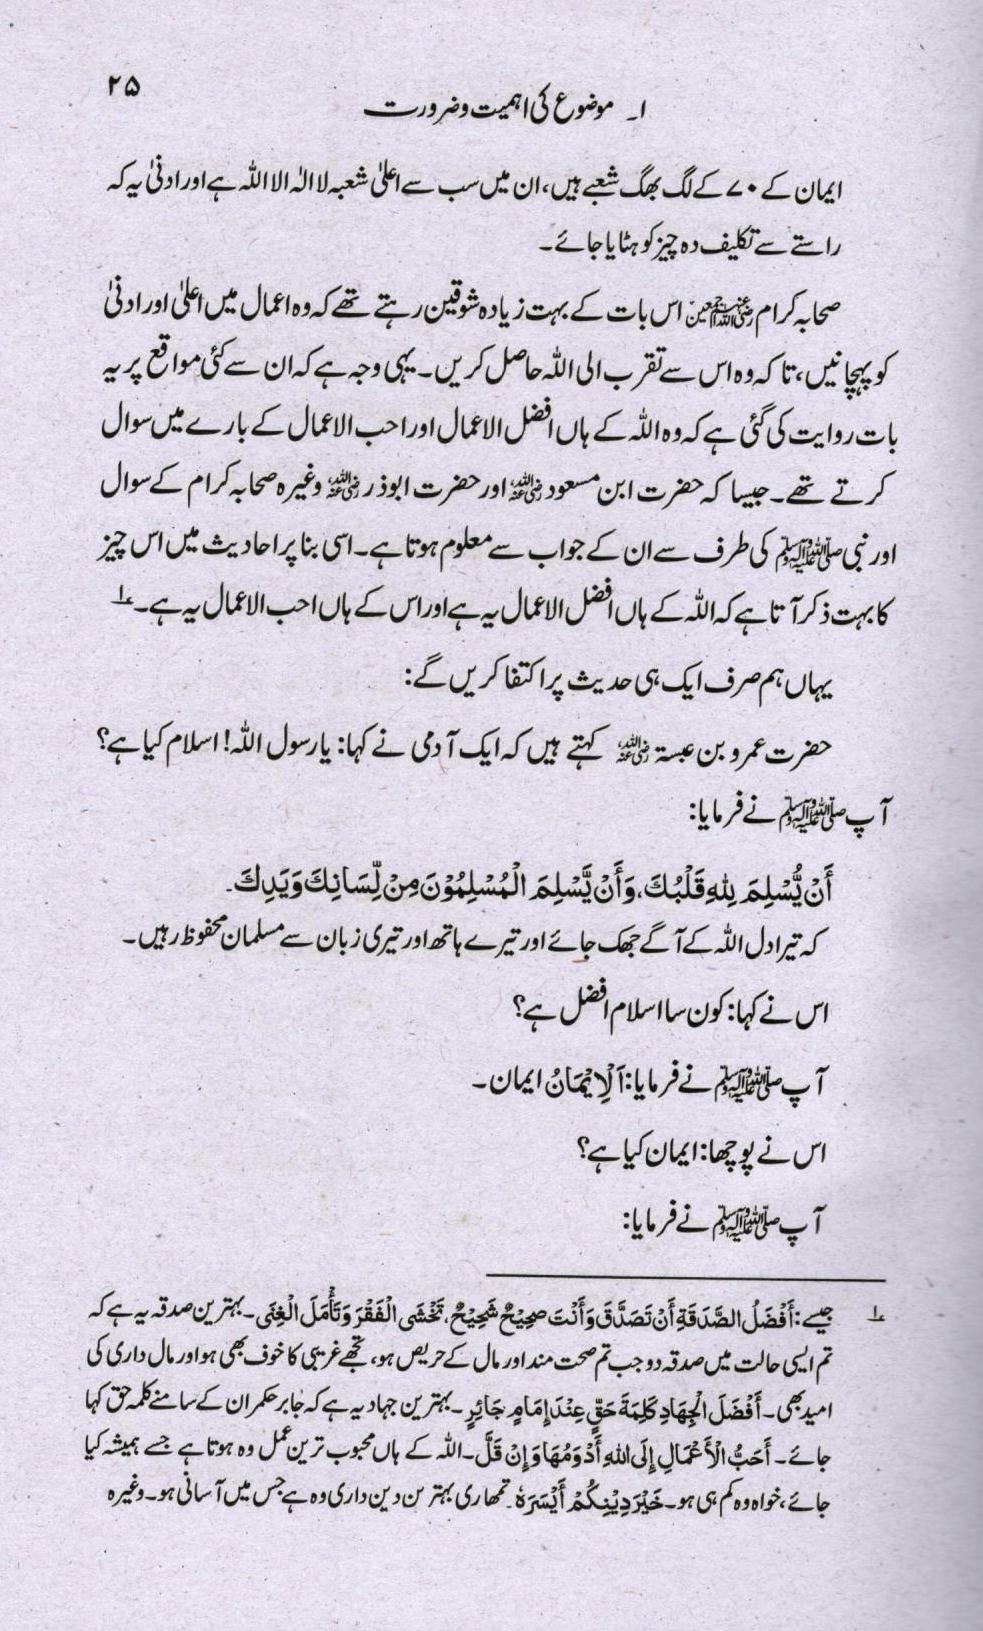 ۲۵
۱۔ موضوع کی اہمیت و ضرورت
ایمان کے ۷۰ کے لگ بھگ شعبے ہیں، ان میں سب سے اعلیٰ شعبہ لا الہ الا اللہ ہے اور ادنیٰ یہ کہ
راستے سے تکلیف دہ چیز کو ہٹایا جائے۔
صحابہ کرام رضی اللہ عنہم اجمعین اس بات کے بہت زیادہ شوقین رہتے تھے کہ وہ اعمال میں اعلیٰ اور ادنیٰ
کو پہچانیں، تا کہ وہ اس سے تقرب الی اللہ حاصل کریں۔ یہی وجہ ہے کہ ان سے کئی مواقع پر یہ
بات روایت کی گئی ہے کہ وہ اللہ کے ہاں افضل الاعمال اور احب الاعمال کے بارے میں سوال
کرتے تھے۔ جیسا کہ حضرت ابن مسعود رضی اللہ عنہ اور حضرت ابوذر رضی اللہ عنہ وغیرہ صحابہ کرام کے سوال
اور نبی ﷺ کی طرف سے ان کے جواب سے معلوم ہوتا ہے۔ اسی بنا پر احادیث میں اس چیز
کا بہت ذکر آتا ہے کہ اللہ کے ہاں افضل الاعمال یہ ہے اور اس کے ہاں احب الاعمال یہ ہے۔ ۱؎
یہاں ہم صرف ایک ہی حدیث پر اکتفا کریں گے:
حضرت عمرو بن عبسۃ رضی اللہ عنہ کہتے ہیں کہ ایک آدمی نے کہا: یا رسول اللہ! اسلام کیا ہے؟
آپ ﷺ نے فرمایا:
أَنْ يُّسْلِمَ لِلّٰهِ قَلْبُكَ، وَأَنْ يَّسْلِمَ الْمُسْلِمُوْنَ مِنْ لِّسَانِكَ وَيَدِكَ۔
کہ تیرا دل اللہ کے آگے جھک جائے اور تیرے ہاتھ اور تیری زبان سے مسلمان محفوظ رہیں۔
اس نے کہا: کون سا اسلام افضل ہے؟
آپ ﷺ نے فرمایا: اَلْاِيْمَانُ ایمان۔
اس نے پوچھا: ایمان کیا ہے؟
آپ ﷺ نے فرمایا:
۱؎ جیسے: أَفْضَلُ الصَّدَقَةِ أَنْ تَصَدَّقَ وَأَنْتَ صَحِيْحٌ شَحِيْحٌ، تَخْشَى الْفَقْرَ وَتَأْمَلَ الْغِنٰى۔ بہترین صدقہ یہ ہے کہ
تم ایسی حالت میں صدقہ دو جب تم صحت مند اور مال کے حریص ہو، تجھے غریبی کا خوف بھی ہو اور مال داری کی
امید بھی۔ أَفْضَلَ الْجِهَادِ كَلِمَةَ حَقٍّ عِنْدَ إِمَامٍ جَائِرٍ۔ بہترین جہاد یہ ہے کہ جابر حکمران کے سامنے کلمہ حق کہا
جائے۔ أَحَبُّ الْأَعْمَالِ إِلَى اللهِ أَدْوَمُهَا وَإِنْ قَلَّ۔ اللہ کے ہاں محبوب ترین عمل وہ ہوتا ہے جسے ہمیشہ کیا
جائے، خواہ وہ کم ہی ہو۔ خَيْرَ دِيْنِكُمْ أَيْسَرَهٗ۔ تمھاری بہترین دین داری وہ ہے جس میں آسانی ہو۔ وغیرہ